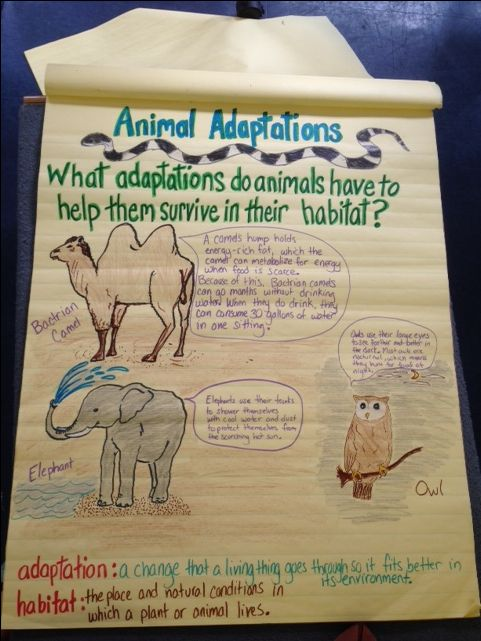 Animal Adaptations
What adaptations do animals have to
help them survive in their habitat?
A camels hump holds
energy-rich fat, which the
camel can metabolize for energy
when food is scarce.
Because of this, Bactrian camels
can go months without drinking
water. When they do drink, they
can consume 30 gallons of water
in one sitting.
Bactrian
Camel
Owls use their large eyes
to see farther and better in
the dark. Most owls are
nocturnal, which means
they hunt for food at
night.
Elephants use their trunks
to shower themselves
with cool water and dust
to protect themselves from
the scorching hot sun.
Elephant
Owl
adaptation: a change that a living thing goes through so it fits better in
its environment.
habitat: the place and natural conditions in
which a plant or animal lives.